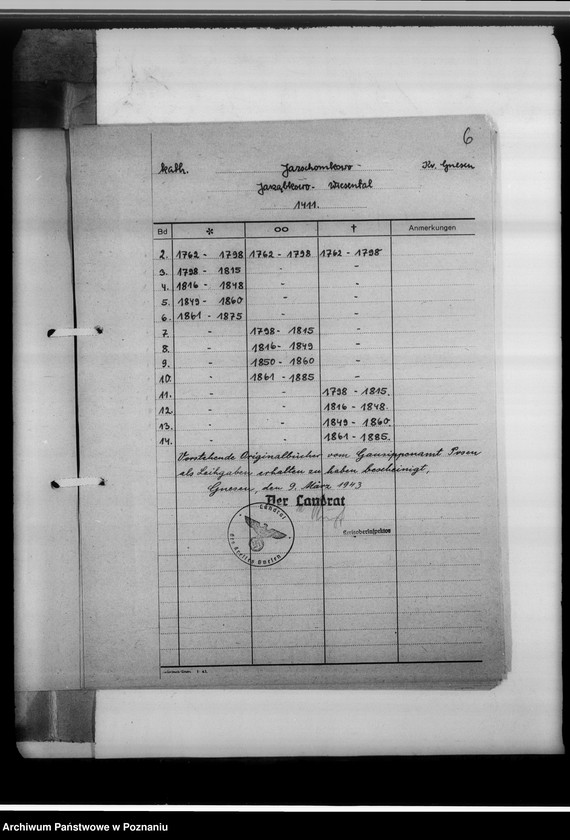 6
kath. Jarschombkowo - Kr. Gnesen
Jarząbkowo - Wiesental
1411.
Bd * ∞ † Anmerkungen
2. 1762 - 1798 1762 - 1798 1762 - 1798
3. 1798 - 1815 - -
4. 1816 - 1848 - -
5. 1849 - 1860 - -
6. 1861 - 1875 - -
7. - 1798 - 1815 -
8. - 1816 - 1849 -
9. - 1850 - 1860 -
10. - 1861 - 1885 -
11. - - 1798 - 1815.
12. - - 1816 - 1848.
13. - - 1849 - 1860.
14. - - 1861 - 1885.
Vorstehende Originalbücher vom Gausippenamt Posen
als Leihgaben erhalten zu haben bescheinigt,
Gnesen, den 9. März 1943
Der Landrat
Landrat
des Kreises Gnesen
Kreisoberinspektor
Archiwum Państwowe w Poznaniu